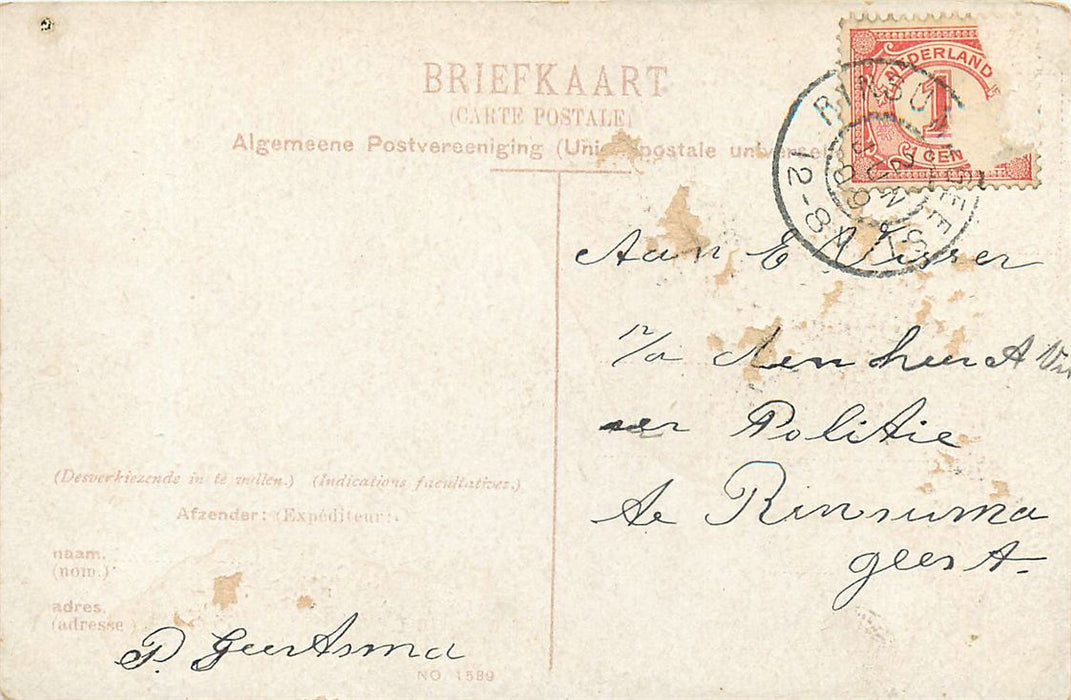 BRIEFKAART
(CARTE POSTALE)
Algemeene Postvereeniging (Union postale universelle
NEDERLAND
1
CENT
12-8N
JUN
Aan E Visser
p/a den heer A Vis
ser Politie
te Rinsuma
geest
(Desverkiezende in te vullen.) (Indications facultatives.)
Afzender: (Expéditeur:)
naam.
(nom.)
adres.
(adresse)
P. Geertsma
NO 1589